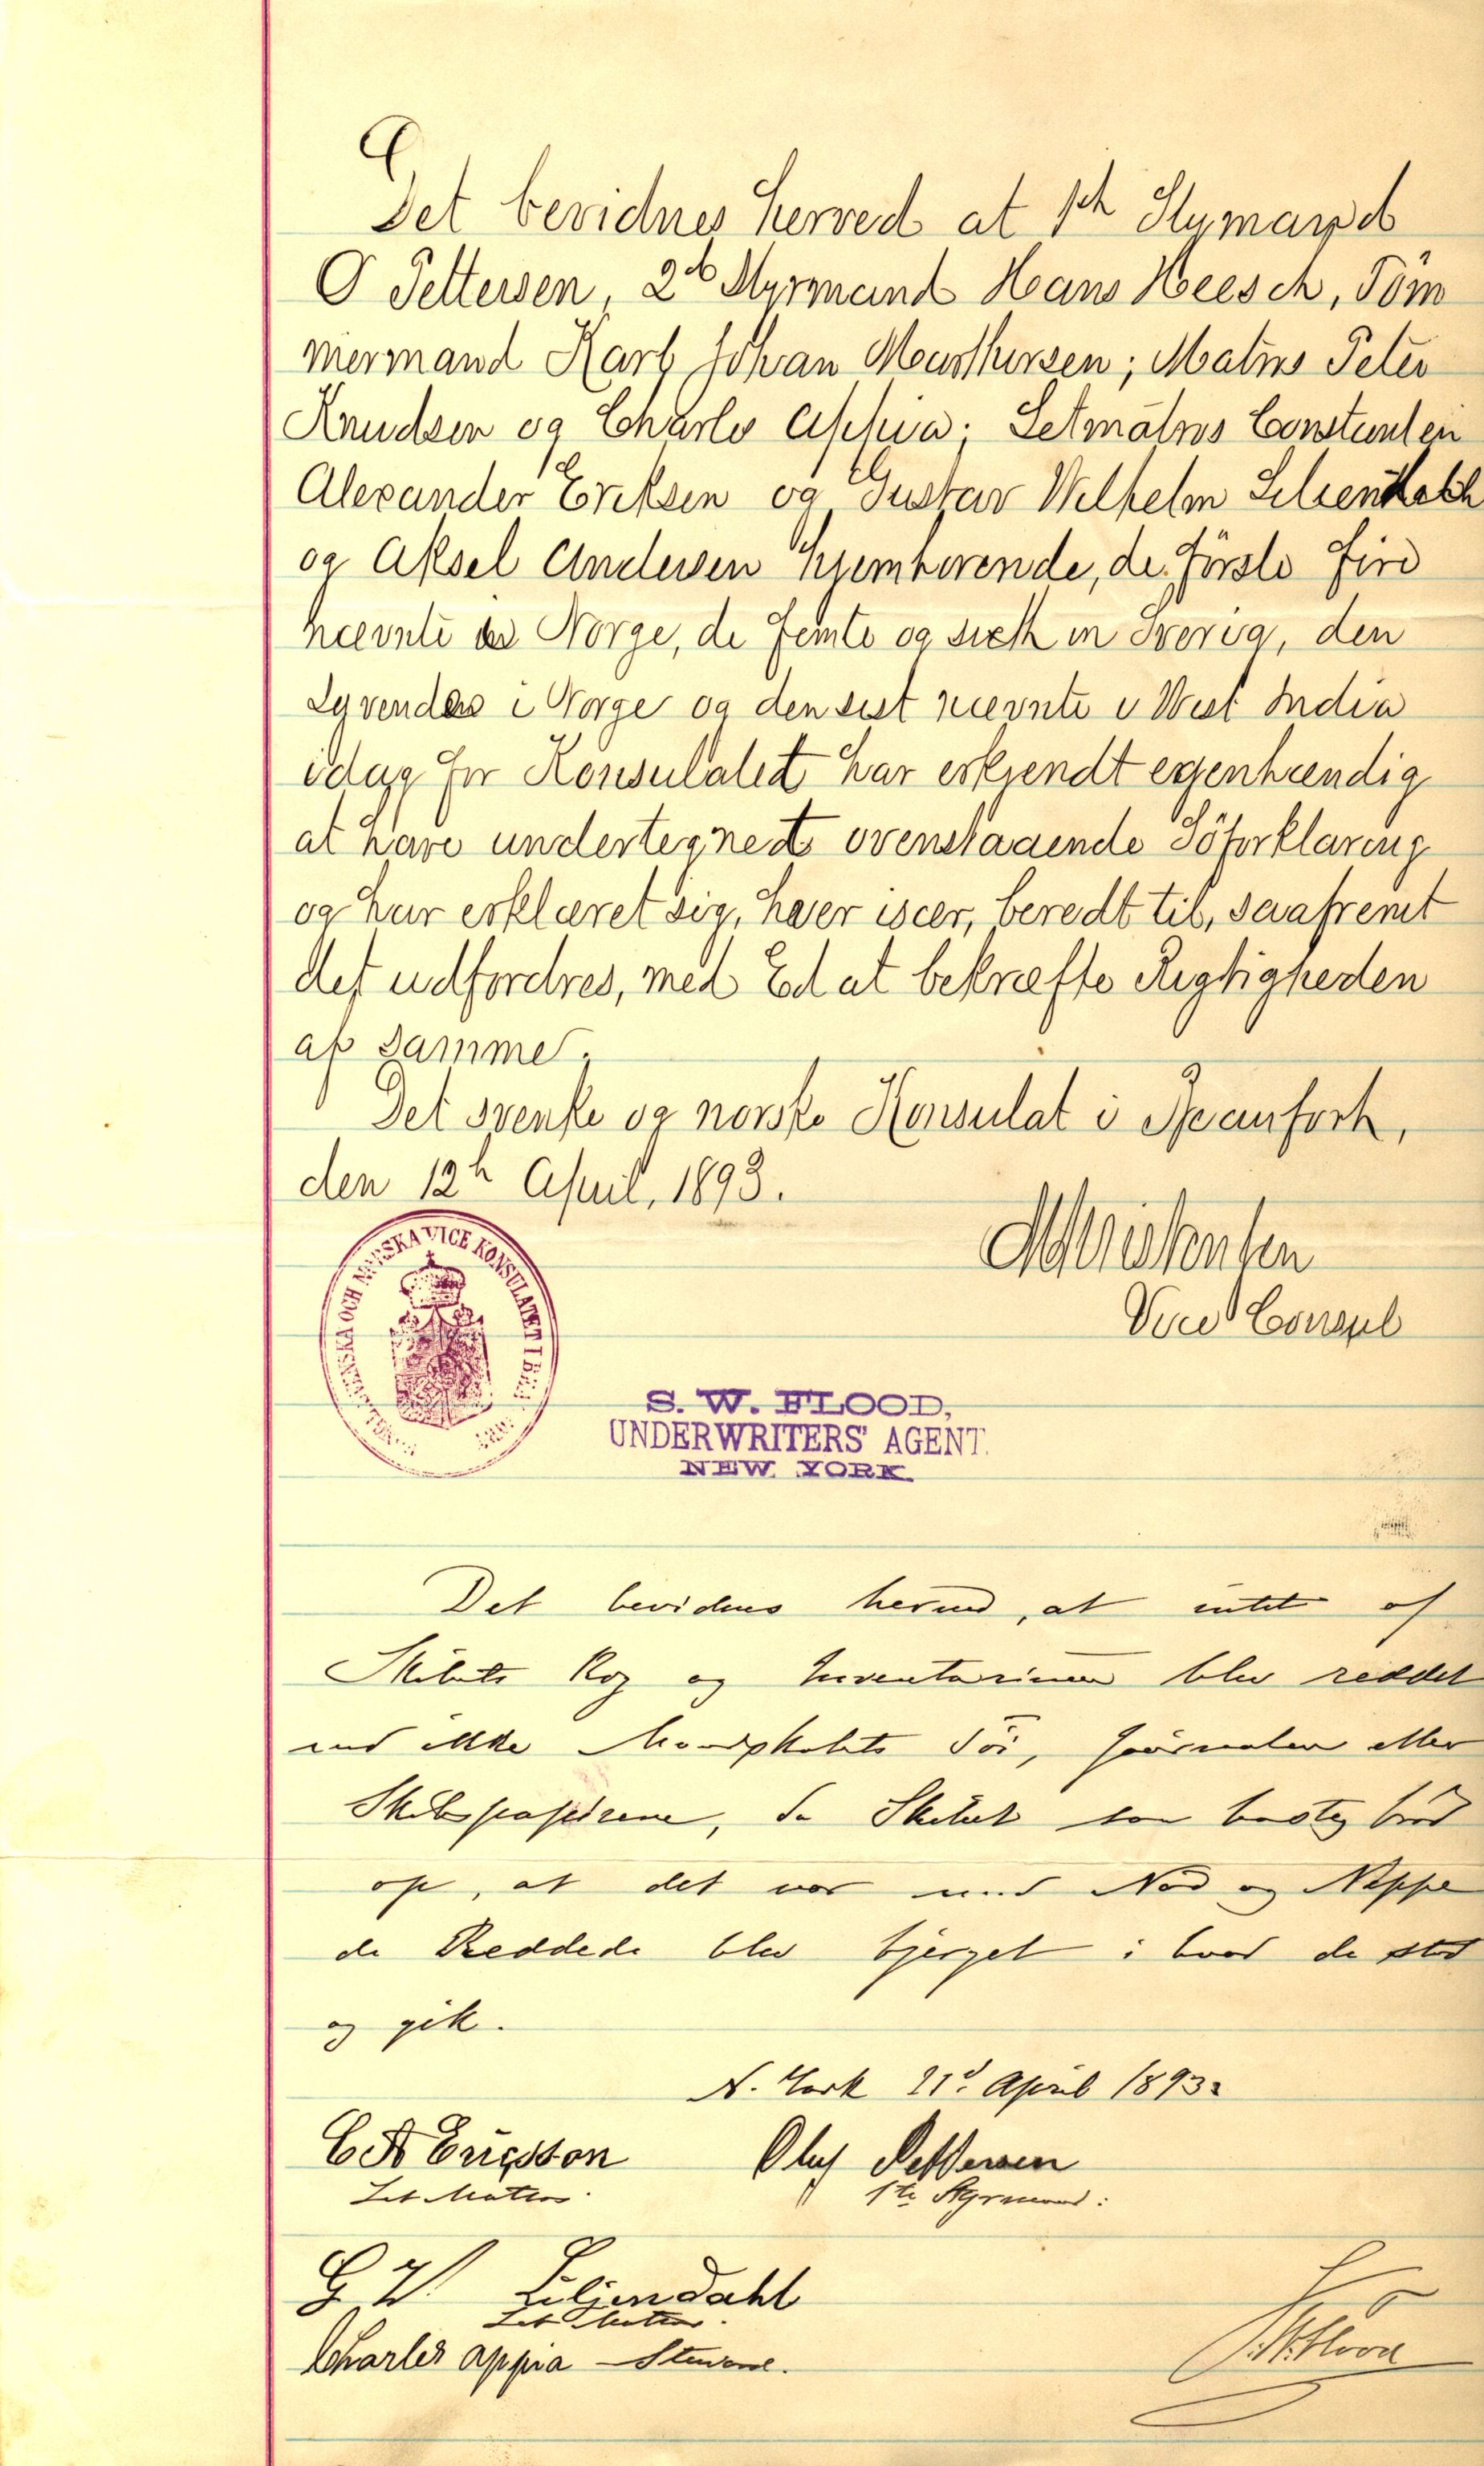 Det bevidnes herved at 1ch Stymand
O Pettersen, 2d Styrmand Hans Heesch, Töm
mermand Karl Johan Mourthersen; Matrs Peter
Knudsen og Charls Appia; Letmatrs Constanten
Alexander Eriksen og Gustav Wilhelm
og Aksel Andersen hjemhörende, de förste fire
nævnte i Norge, de femte og siett in Sverig, den
syvendes i Norge og den sist nævnte i West India
idag for Konsulatet har erkjendt egenhændig
at have undertegnet ovenstaaende Söforklaring
og har erklæret sig, hver iscer, beredt til, saafremt
det udfordres, med Ed at bekræfte Rigtigheden
af samme.
Det svenske og norske Konsulat i Beaufort,
den 12h April, 1893.
Vice Consul
SVENSKA OCH NORSKA VICE KONSULATET I
S. W. FLOOD,
UNDERWRITERS' AGENT.
NEW YORK.
Det bevidnes herved, at intet af
Skibets Rog og Inventarium blev reddet
end ikke Mandskabets Töi, Journalen eller
Skibspapirerne, da Skibet saa hastig bröd
op, at det var med Nöd og Neppe
de Reddede blev bjerget i hvad de stod
og gik.
N. York 21d April 1893
C A Ericsson Oluf Pettersen
Let Matros. 1ste Styrmand:
G W Liljendahl
Let Matros.
Charles appia - Steward.
S. W. Flood